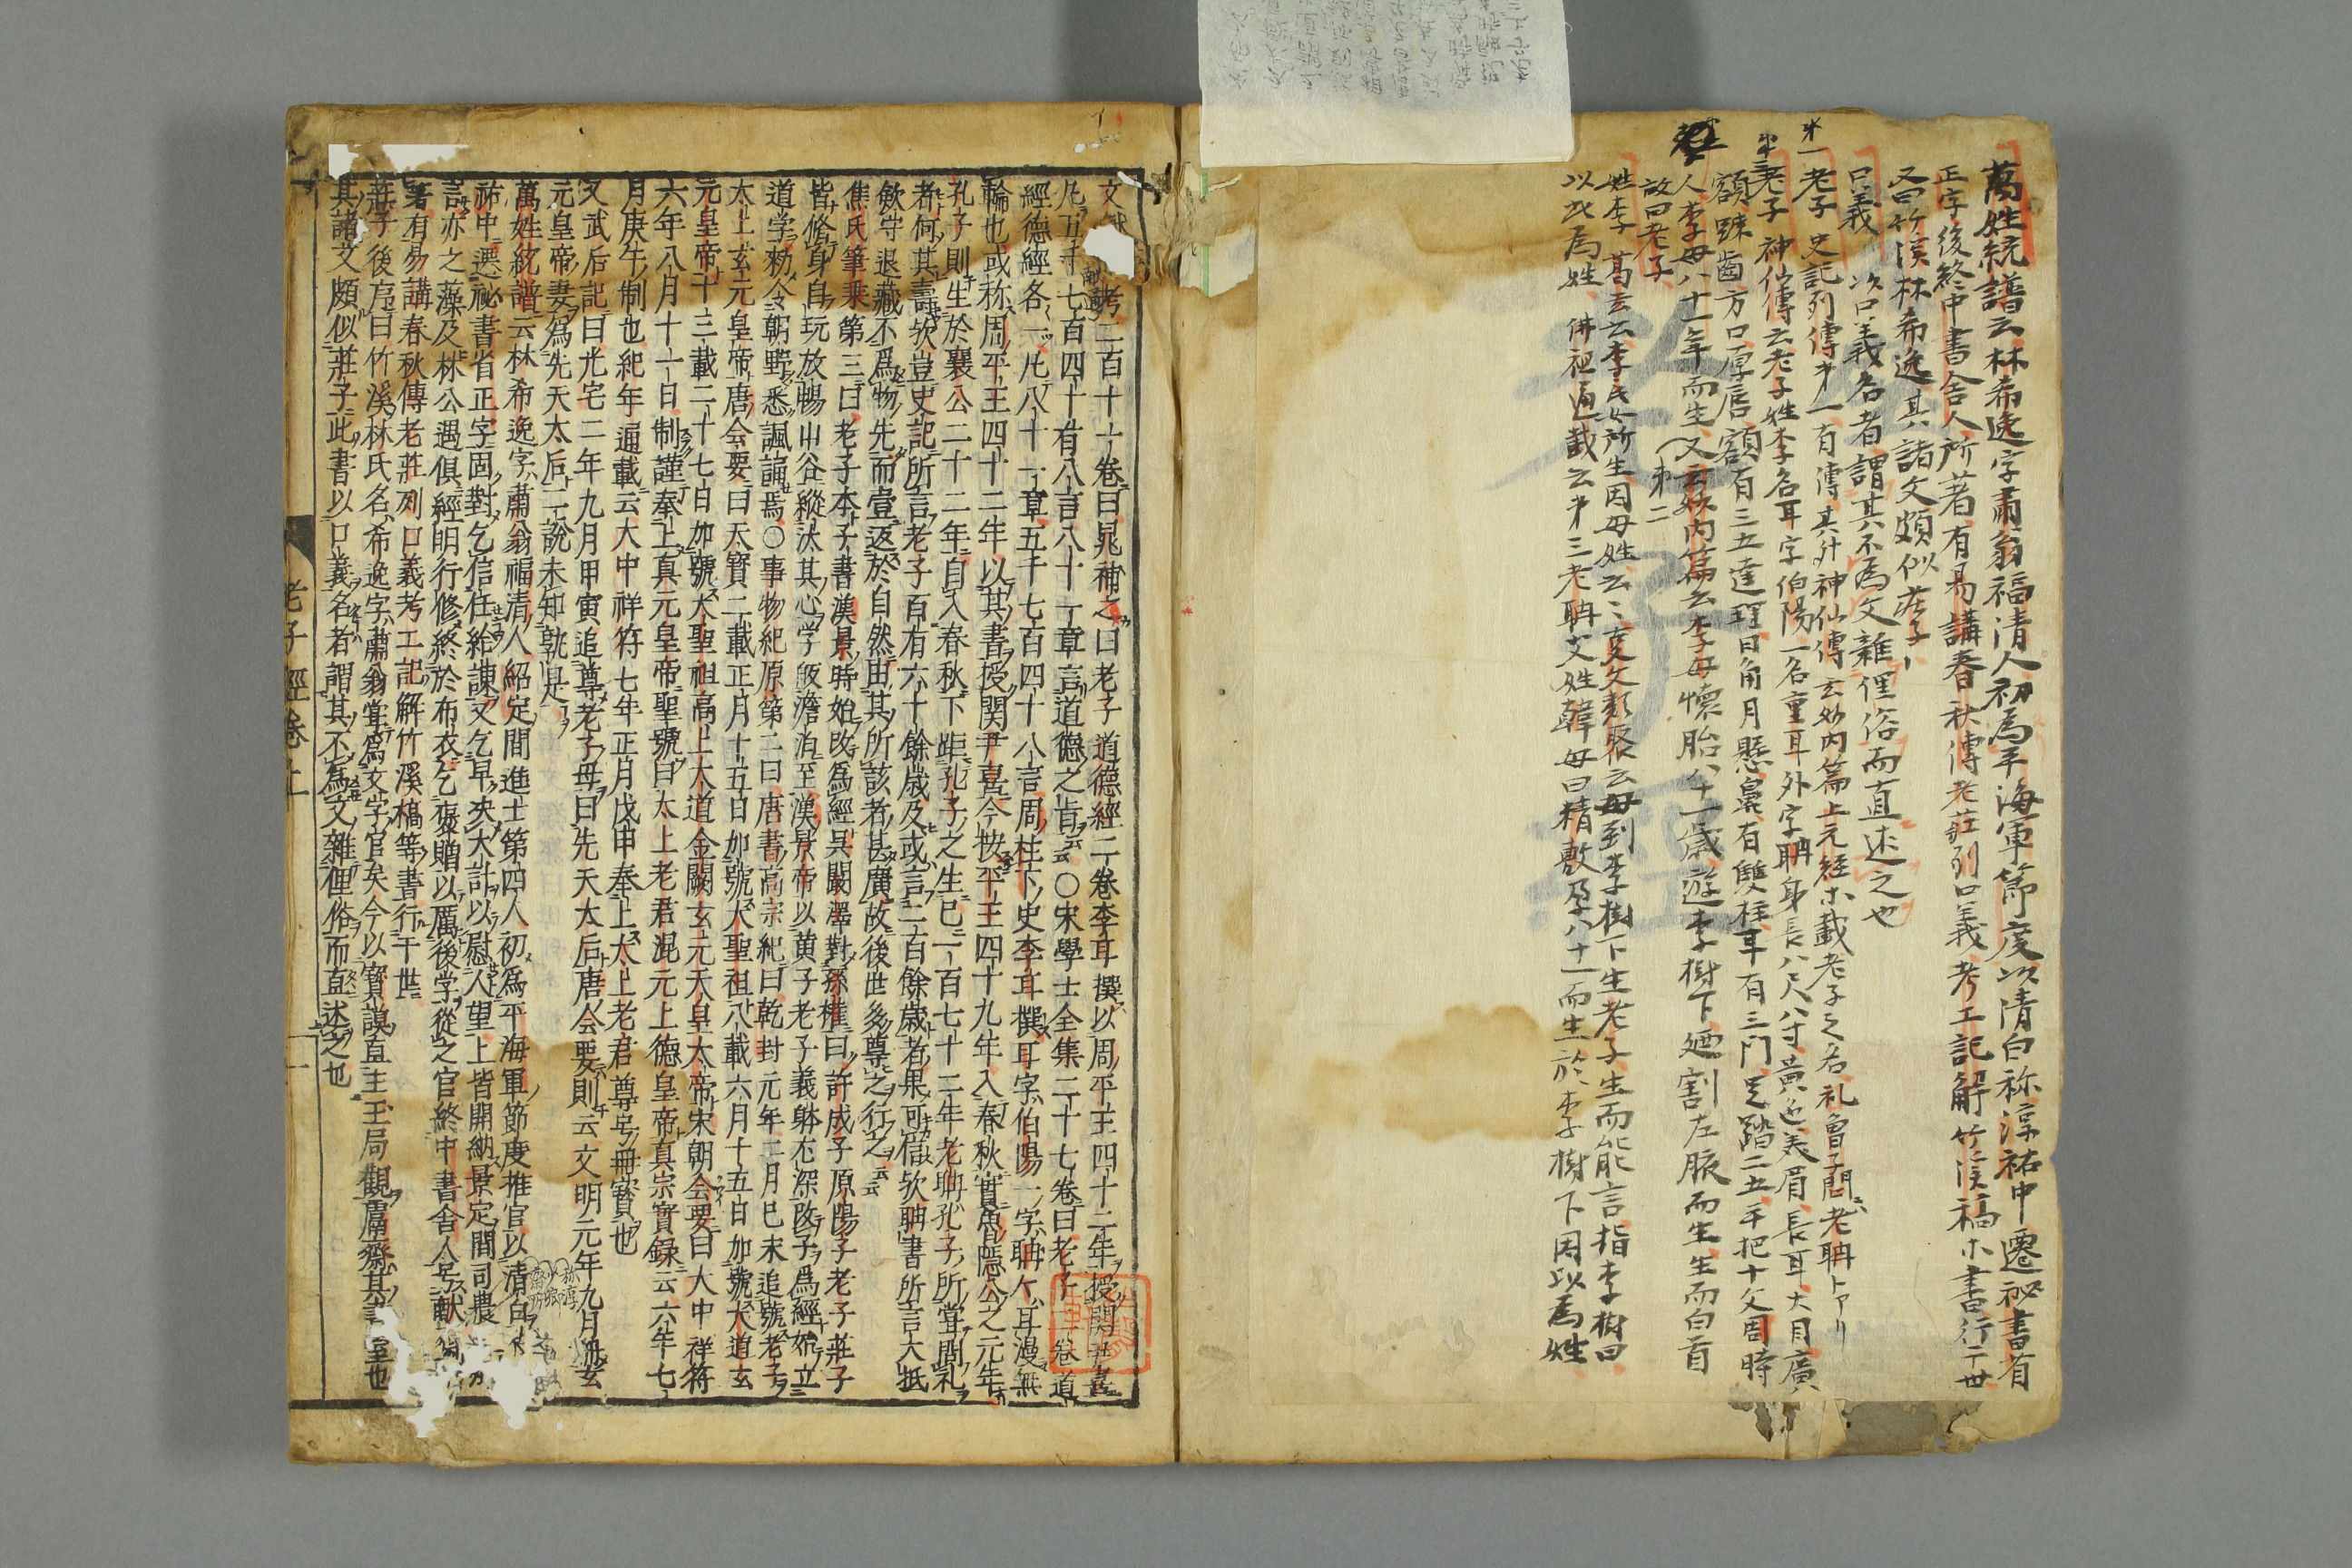 萬姓統譜云林希逸字肅翁福清人初為平海軍節度以清白称淳祐中遷祕書省
正字後終中書舍人所著有易講春秋傳老莊列口義考工記解竹溪稿木書行于世
又曰竹溪林希逸其諸文頗似荘子
口義 次口義名者謂其不為文雜俚俗而直述之也
老子 史記列傳才一有傳其外神仙傳玄妙内篇上元経ホ載老子之名礼曽子問ニ老聃トアリ
老子 神仙傳云老子姓李名耳字伯陽一名重耳外字聃身長八尺八寸黄色美眉長耳大目廣
額踈齒方口厚唇額有三五達理日角月懸鼻有雙柱耳有三門足蹈二五手把十文周時
人李母八十一年而生又玄妙内篇云李母懐胎八十一歳遊李樹下廼割左腋而生生而白首
故曰老子
姓李 葛玄云李氏女所生因母姓云〻又文類聚云母到李樹下生老子生而能言指李樹曰
以此為姓 佛祖通載云才三老聃父姓韓母曰精敷孕八十一而生於李樹下因以為姓
才一
才二
考二百十一卷曰晁補之曰老子道德經二卷李耳撰以周平王四十二年授関尹喜
凡五千七百四十有八言八十一章言道德之旨云云○宋學士全集二十七卷曰老子一卷道
經德經各一凡八十一章五千七百四十八言周柱下史李耳撰耳字伯陽一字聃聃耳漫無
輪也或称周平王四十二年以其書授関尹喜今按平王四十九年入春秋實魯隠公之元年
孔子則生於襄公二十二年自入春秋下距孔子之生已一百七十二年老聃孔子所嘗問礼
者何其壽欤豈史記所言老子百有六十餘歳及或言二百餘歳者果可徴欤聃書所言大抵
斂守退藏不為物先而壹返於自然由其所該者甚廣故後世多尊之行之云云
焦氏筆乗第三曰老子本子書漢景時始改為經呉闞澤對孫權曰許成子原陽子老子莊子
皆修身自玩放暢山谷縱汰其心学皈澹泊至漢景帝以黄子老子義躰尤深改子為經始立
道学勅令朝野悉諷誦焉○事物紀原第二曰唐書高宗紀曰乾封元年三月己未追號老子
太上玄元皇帝唐会要曰天寳二載正月十五日加號大聖祖八載六月十五日加號大道玄
元皇帝十三載二十七日加號大聖祖高上大道金闕玄元天皇大帝宋朝会要曰大中祥符
六年八月十一日制謹奉上真元皇帝聖號曰太上老君混元上德皇帝真宗實録云六年七
月庚午制也紀年通載云大中祥符七年正月戊申奉上太上老君尊号冊寳也
又武后記曰光宅二年九月甲寅追尊老子母曰先天太后唐会要則云文明元年九月冊玄
元皇帝妻為先天太后二説未知孰是
萬姓統譜云林希逸字肅翁福清人紹定間進士第四人初為平海軍節度推官以清白
祐中遷祕書省正字因對乞信任給諫又乞早央大計以慰人望上皆開納景定間司農
言亦之藻及林公遇俱經明行修終於布衣乞褒贈以厲後学從之官終中書舍人号
著有易講春秋傳老莊列口義考工記解竹溪槁等書行于世
莊子後序曰竹溪林氏名希逸字肅翁嘗為文字官矣今以寳謨直主玉局觀鬳齋其書室也
其諸文頗似莊子此書以口義名者謂其不為文雜俚俗而直述之也
老子經卷上
一